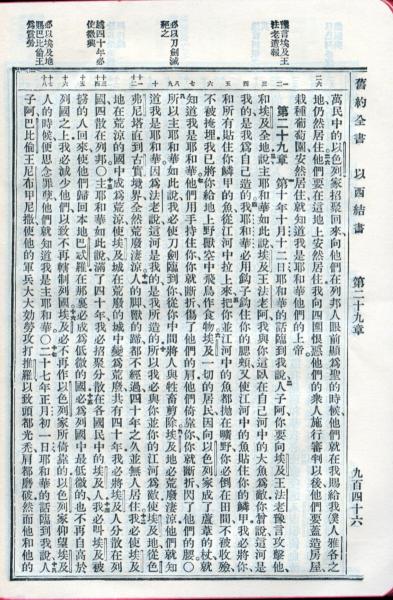 舊約全書 以西結書 第二十九章 九百四十六
豫言埃及王
法老遭報
必以刀劍滅
絶之
越四十年必
使微興
必以埃及地
賜巴比倫王
為賞勞
萬民中的以色列家招聚回來向他們在列邦人眼前顯為聖的時候他們就在我賜給我僕人雅各之
二六 地仍然居住他們要在這地上安然居住我向四圍恨惡他們的衆人施行審判以後他們要蓋造房屋
栽種葡萄園安然居住就知道我是耶和華他們的上帝
第二十九章 第十年十月十二日耶和華的話臨到我說人子阿你要向埃及王法老豫言攻擊他
和埃及全地說主耶和華如此說埃及王法老阿我與你這臥在自己河中的大魚為敵你曾說這河是
我的是我為自己造的我耶和華必用鈎子鈎住你的腮頰又使江河中的魚貼住你的鱗甲我必將你
和所有貼住你鱗甲的魚從江河中拉上來把你並江河中的魚都拋在曠野你必倒在田間不被收殮
不被掩埋我已將你給地上野獸空中飛鳥作食物埃及一切的居民因向以色列家成了蘆葦的杖就
知道我是耶和華他們用手持住你你就斷折傷了他們的肩他們倚靠你你就斷折閃了他們的腰○
所以主耶和華如此說我必使刀劍臨到你從你中間將人與牲畜剪除埃及地必荒廢淒涼他們就知
道我是耶和華因為法老說這河是我的是我所造的所以我必與你並你的江河為敵使埃及地從色
弗尼塔直到古實境界全然荒廢淒涼人的脚獸的蹄都不經過四十年之久並無人居住我必使埃及
地在荒涼的國中成為荒涼使埃及城在荒廢的城中變為荒廢共有四十年我必將埃及人分散在列
國四散在列邦○主耶和華如此說滿了四十年我必招聚分散在各國民中的埃及人我必叫埃及被
擄的人回來使他們歸回本地巴忒羅在那裏必成為低微的國必為列國中最低微的也不再自高於
列國之上我必減少他們以致不再轄制列國埃及必不再作以色列家所倚靠的以色列家仰望埃及
人的時候便思念罪孽他們就知道我是主耶和華○二十七年正月初一日耶和華的話臨到我說人
子阿巴比倫王尼布甲尼撒使他的軍兵大大効勞攻打推羅以致頭都光禿肩都磨破然而他和他的